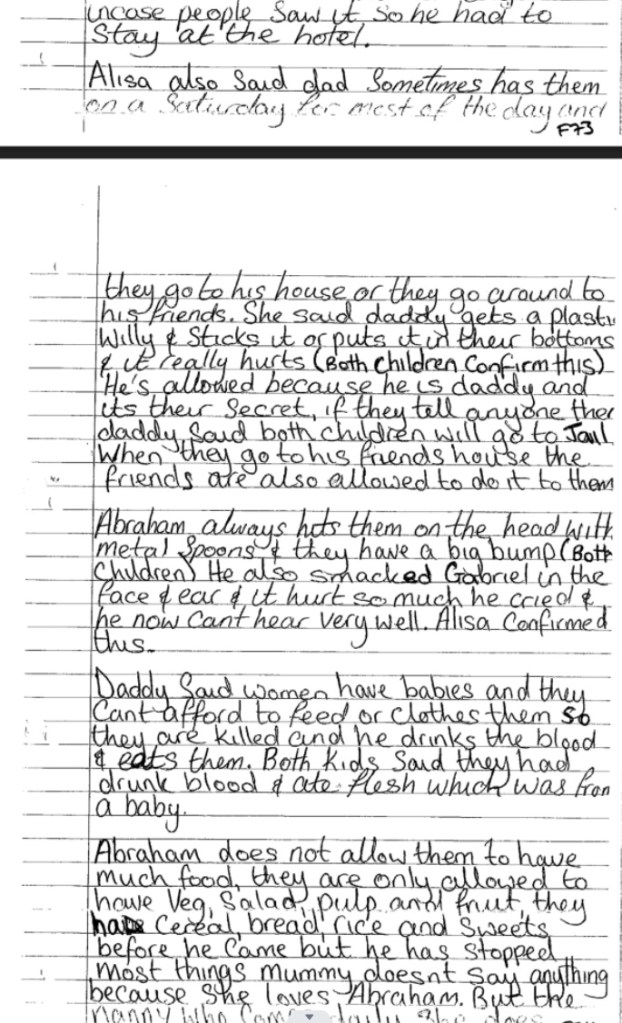 incase people saw it so he had to
stay at the hotel.
Alisa also said dad sometimes has them
on a Saturday for most of the day and
F73
they go to his house or they go around to
his friends. She said daddy gets a plastic
willy & sticks it or puts it in their bottoms
& it really hurts (Both Children Confirm this)
He's allowed because he is daddy and
its their secret, if they tell anyone then
daddy said both children will go to Jail
When they go to his friends house the
friends are also allowed to do it to them
Abraham always hits them on the head with
metal spoons & they have a big bump (Both
Children) He also smacked Gabriel in the
face & ear & it hurt so much he cried &
he now cant hear very well. Alisa Confirmed
this.
Daddy said women have babies and they
Cant afford to feed or clothes them so
they are killed and he drinks the blood
& eats them. Both Kids said they had
drunk blood & ate flesh which was from
a baby.
Abraham does not allow them to have
much food, they are only allowed to
have Veg, Salad, pulp and fruit, they
had Cereal, bread, rice and sweets
before he came but he has stopped
most things mummy doesnt say anything
because she loves Abraham. But the
nanny who